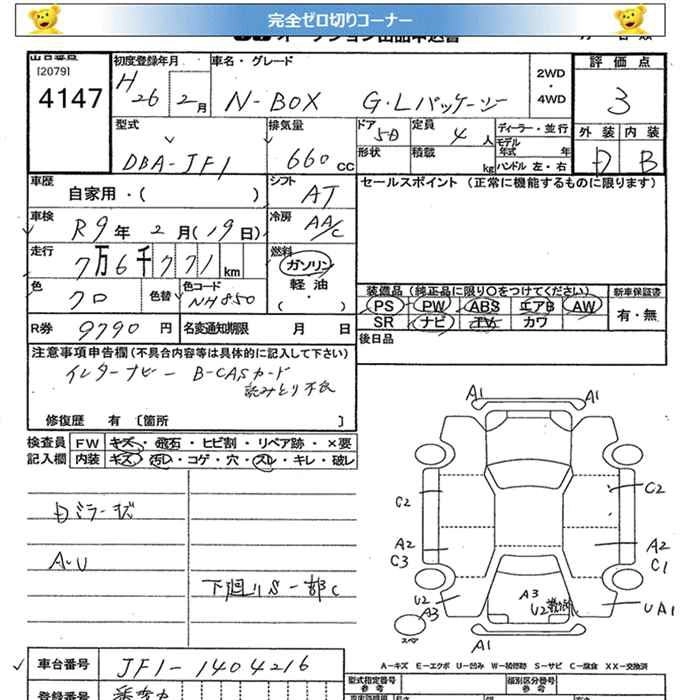 完全ゼロ切りコーナー
[2079]
4147
初度登録年月
H 26 2月
車名・グレード
N-BOX G・Lパッケージ
2WD
・
4WD
評価点
3
外装 内装
D B
型式
DBA-JF1
排気量
660 CC
ドア
5D
定員
4人
形状
積載
kg
ディーラー・並行
モデル年式 年
ハンドル 左・右
車歴
自家用・( )
シフト
AT
セールスポイント (正常に機能するものに限ります)
車検
R9年 2月(19日)
冷房
AA/C
走行
7万6千771km
燃料
ガソリン
軽油
( ・ )
色
クロ
色替
色コード
NH850
装備品 (純正品に限り○をつけてください)
PS PW ABS エアB AW
SR ナビ TV カワ
新車保証書
有・無
R券 9790円
名変通知期限 月 日
後日品
注意事項申告欄(不具合内容等は具体的に記入して下さい)
インターナビー B-CASカード
読みとり不良
修復歴 有 〔箇所 〕
検査員
記入欄
FW キズ・飛石・ヒビ割・リペア跡・×要
内装 キズ・汚レ・コゲ・穴・スレ・キレ・破レ
Dミラーキズ
A・U
下廻りS一部C
A1 A1
C2 C2
A2 C3
A2 C1
U2 A3
A3
U2
UA1
スペア
A1
A-キズ E-エクボ U-凹み W-補修跡 S-サビ C-腐食 XX-交換済
車台番号
JF1-1404216
登録番号
型式指定番号
参考
類別区分番号
参考